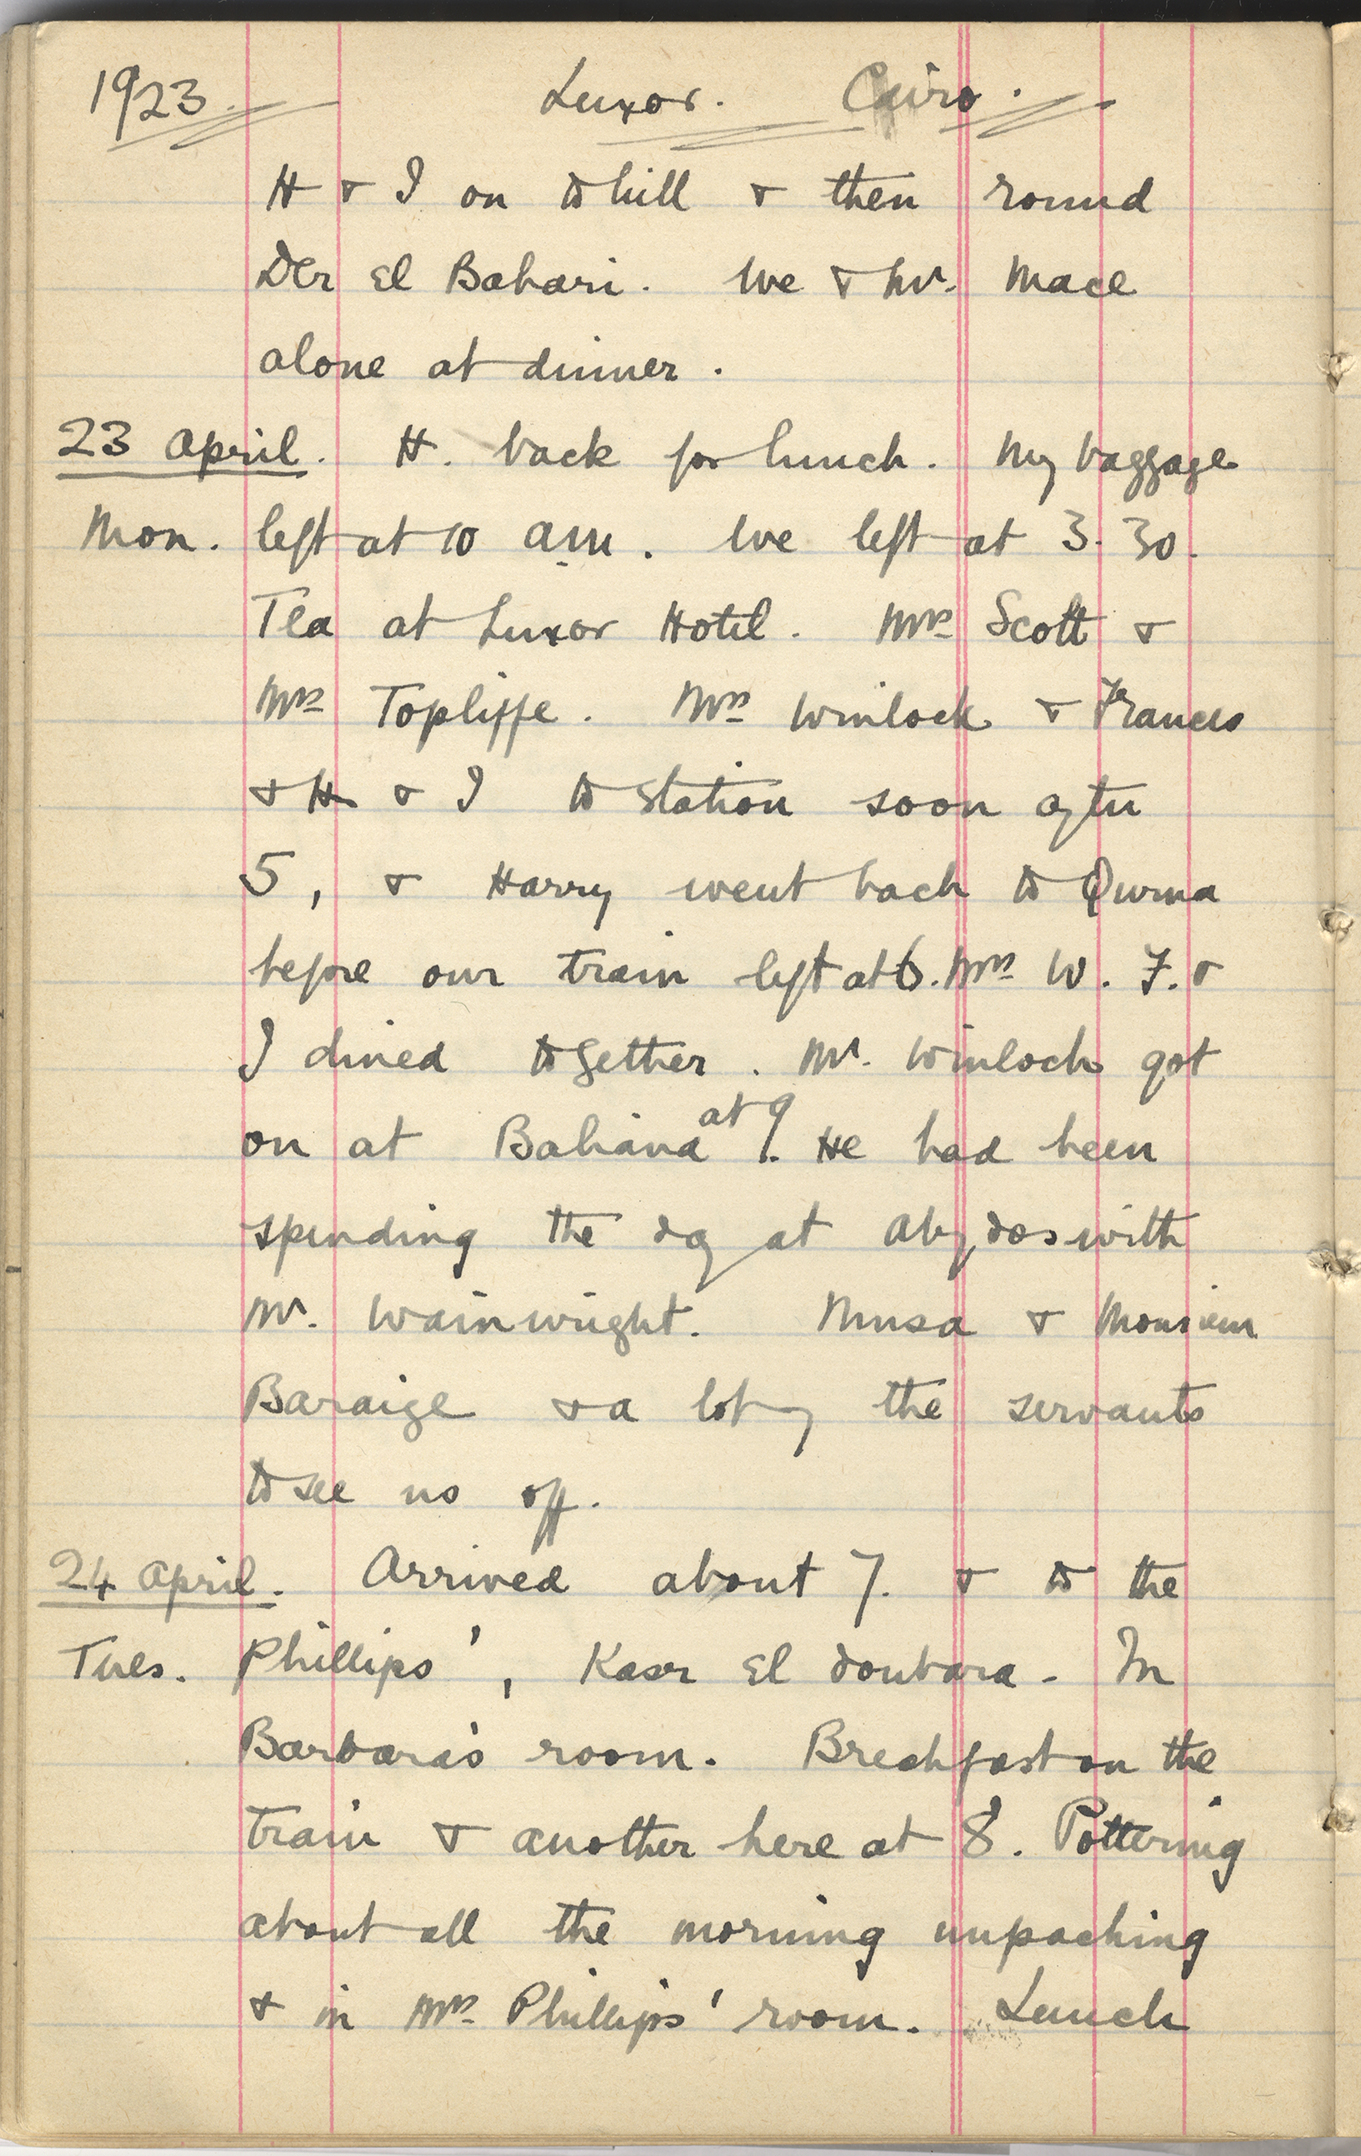 1923. Luxor. Cairo.
H & I on to hill & then round
Der el Bahari. We & Mr. Mace
alone at dinner.
23 April. H. back for lunch. My baggage
Mon. left at 10 am. We left at 3.30.
Tea at Luxor Hotel. Mrs Scott &
Mrs Topliffe. Mrs Winlock & Frances
& H & I to station soon after
5, & Harry went back to Qurna
before our train left at 6. Mrs W. F. &
I dined together. Mr. Winlock got
on at Baliana at 9. He had been
spending the day at Abydos with
Mr. Wainwright. Musa & Monsieur
Baraize & a lot of the servants
to see us off.
24 April. Arrived about 7. & to the
Tues. Phillips', Kasr el Doubara. In
Barbara's room. Breakfast on the
train & another here at 8. Pottering
about all the morning unpacking
& in Mrs Phillips' room. Lunch